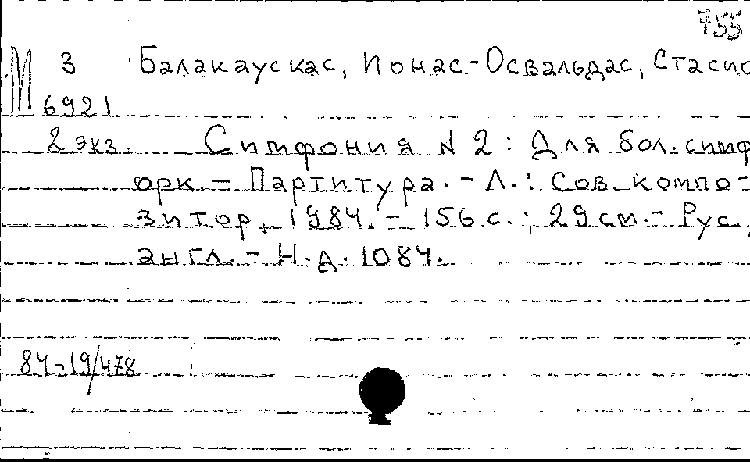 755
М 3 Балакаускас, Ионас-Освальдас, Стасио
6921
2 экз. Симфония N 2 : Для бол. симф
орк - Партитура. - Л. : Сов. компо-
зитор, 1984. - 156 с. ; 29 см. - Рус,
англ. - Н.д. 1084.
84-19/478